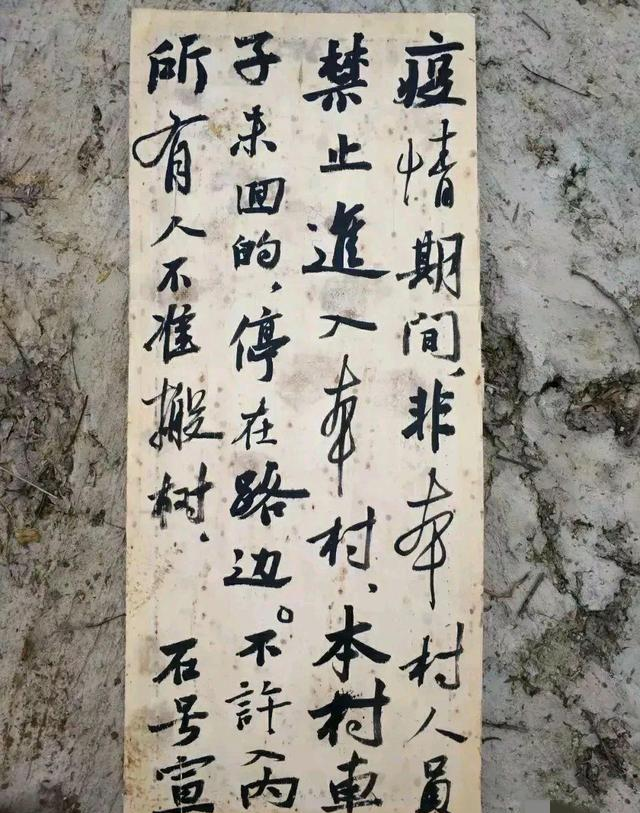 疫情期间、非本村人员
禁止進入本村、本村車
子未回的，停在路边。不許入内
所有人不准搬树. 石号宣